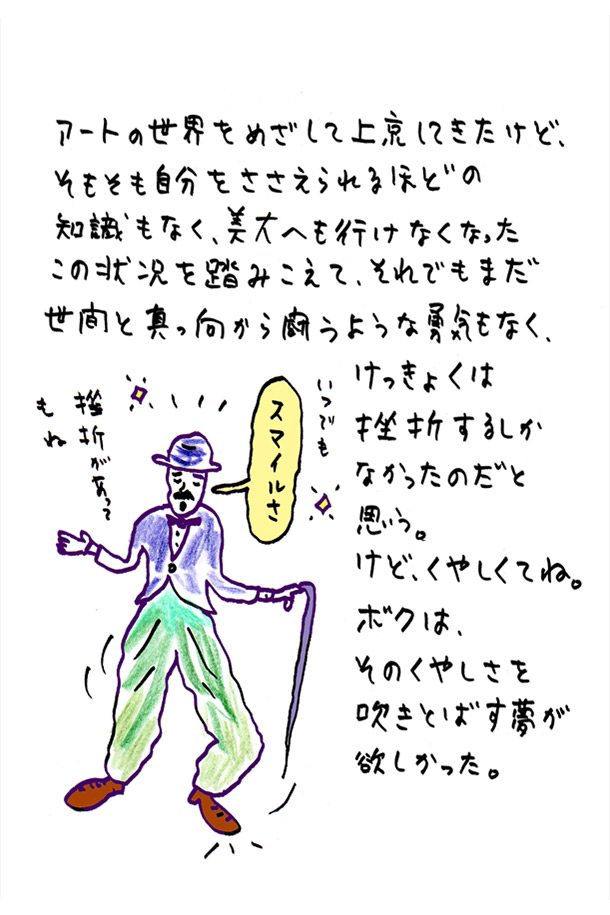 アートの世界をめざして上京してきたけど、
そもそも自分をささえられるほどの
知識もなく、美大へも行けなくなった
この状況を踏みこえて、それでもまだ
世間と真っ向から闘うような勇気もなく、
けっきょくは
挫折するしか
なかったのだと
思う。
けど、くやしくてね。
ボクは、
そのくやしさを
吹きとばす夢が
欲しかった。
いつでも
スマイルさ
挫折があって
もね